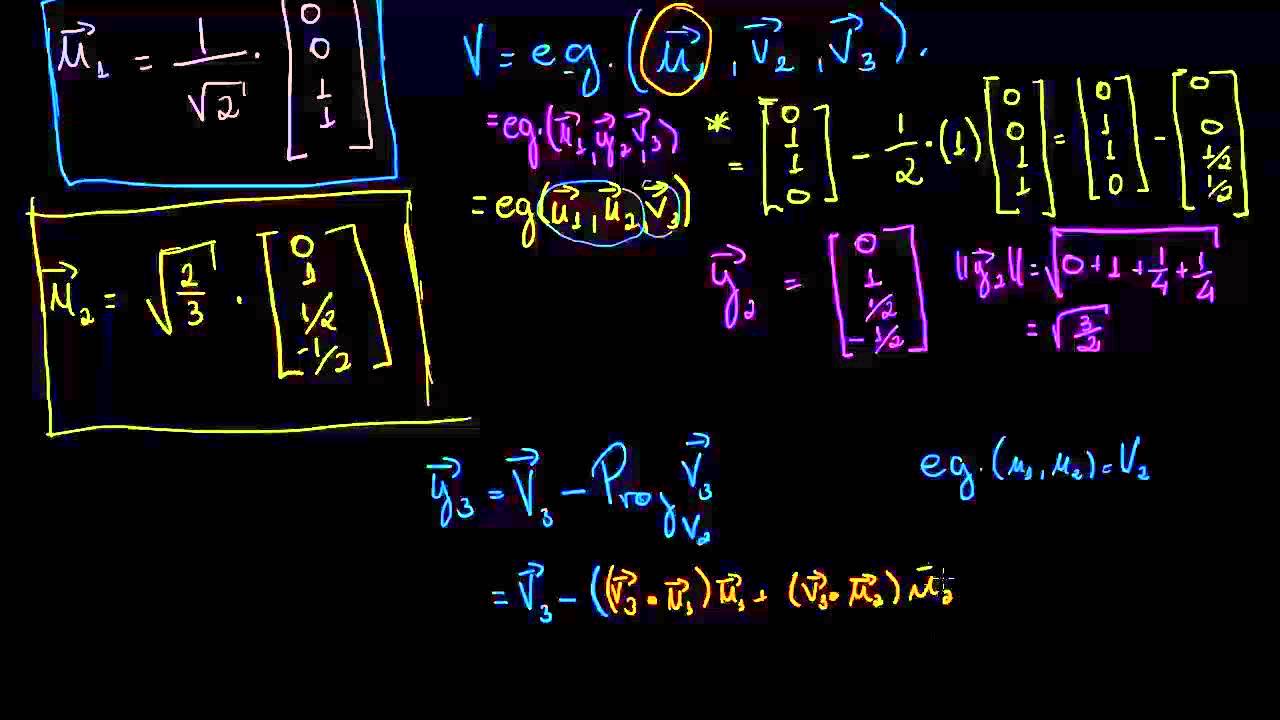 μ⃗₁ = 1/√2 · [0 0 1 1]
V = eg. (μ⃗₁, v⃗₂, v⃗₃).
= eg. (μ⃗₁, y⃗₂, v⃗₃)
= eg (μ⃗₁, μ⃗₂, v⃗₃)
* = [0 1 1 0] − 1/2 · (1) [0 0 1 1] = [0 1 1 0] − [0 0 1/2 1/2]
μ⃗₂ = √(2/3) · [0 1 1/2 -1/2]
y⃗₂ = [0 1 1/2 -1/2]
||y⃗₂|| = √(0 + 1 + 1/4 + 1/4)
= √(3/2)
y⃗₃ = v⃗₃ − Proy_V₂ v⃗₃
eg. (μ₁, μ₂) = V₂
= v⃗₃ − ((v⃗₃ · μ⃗₁) μ⃗₁ + (v⃗₃ · μ⃗₂) μ⃗₂